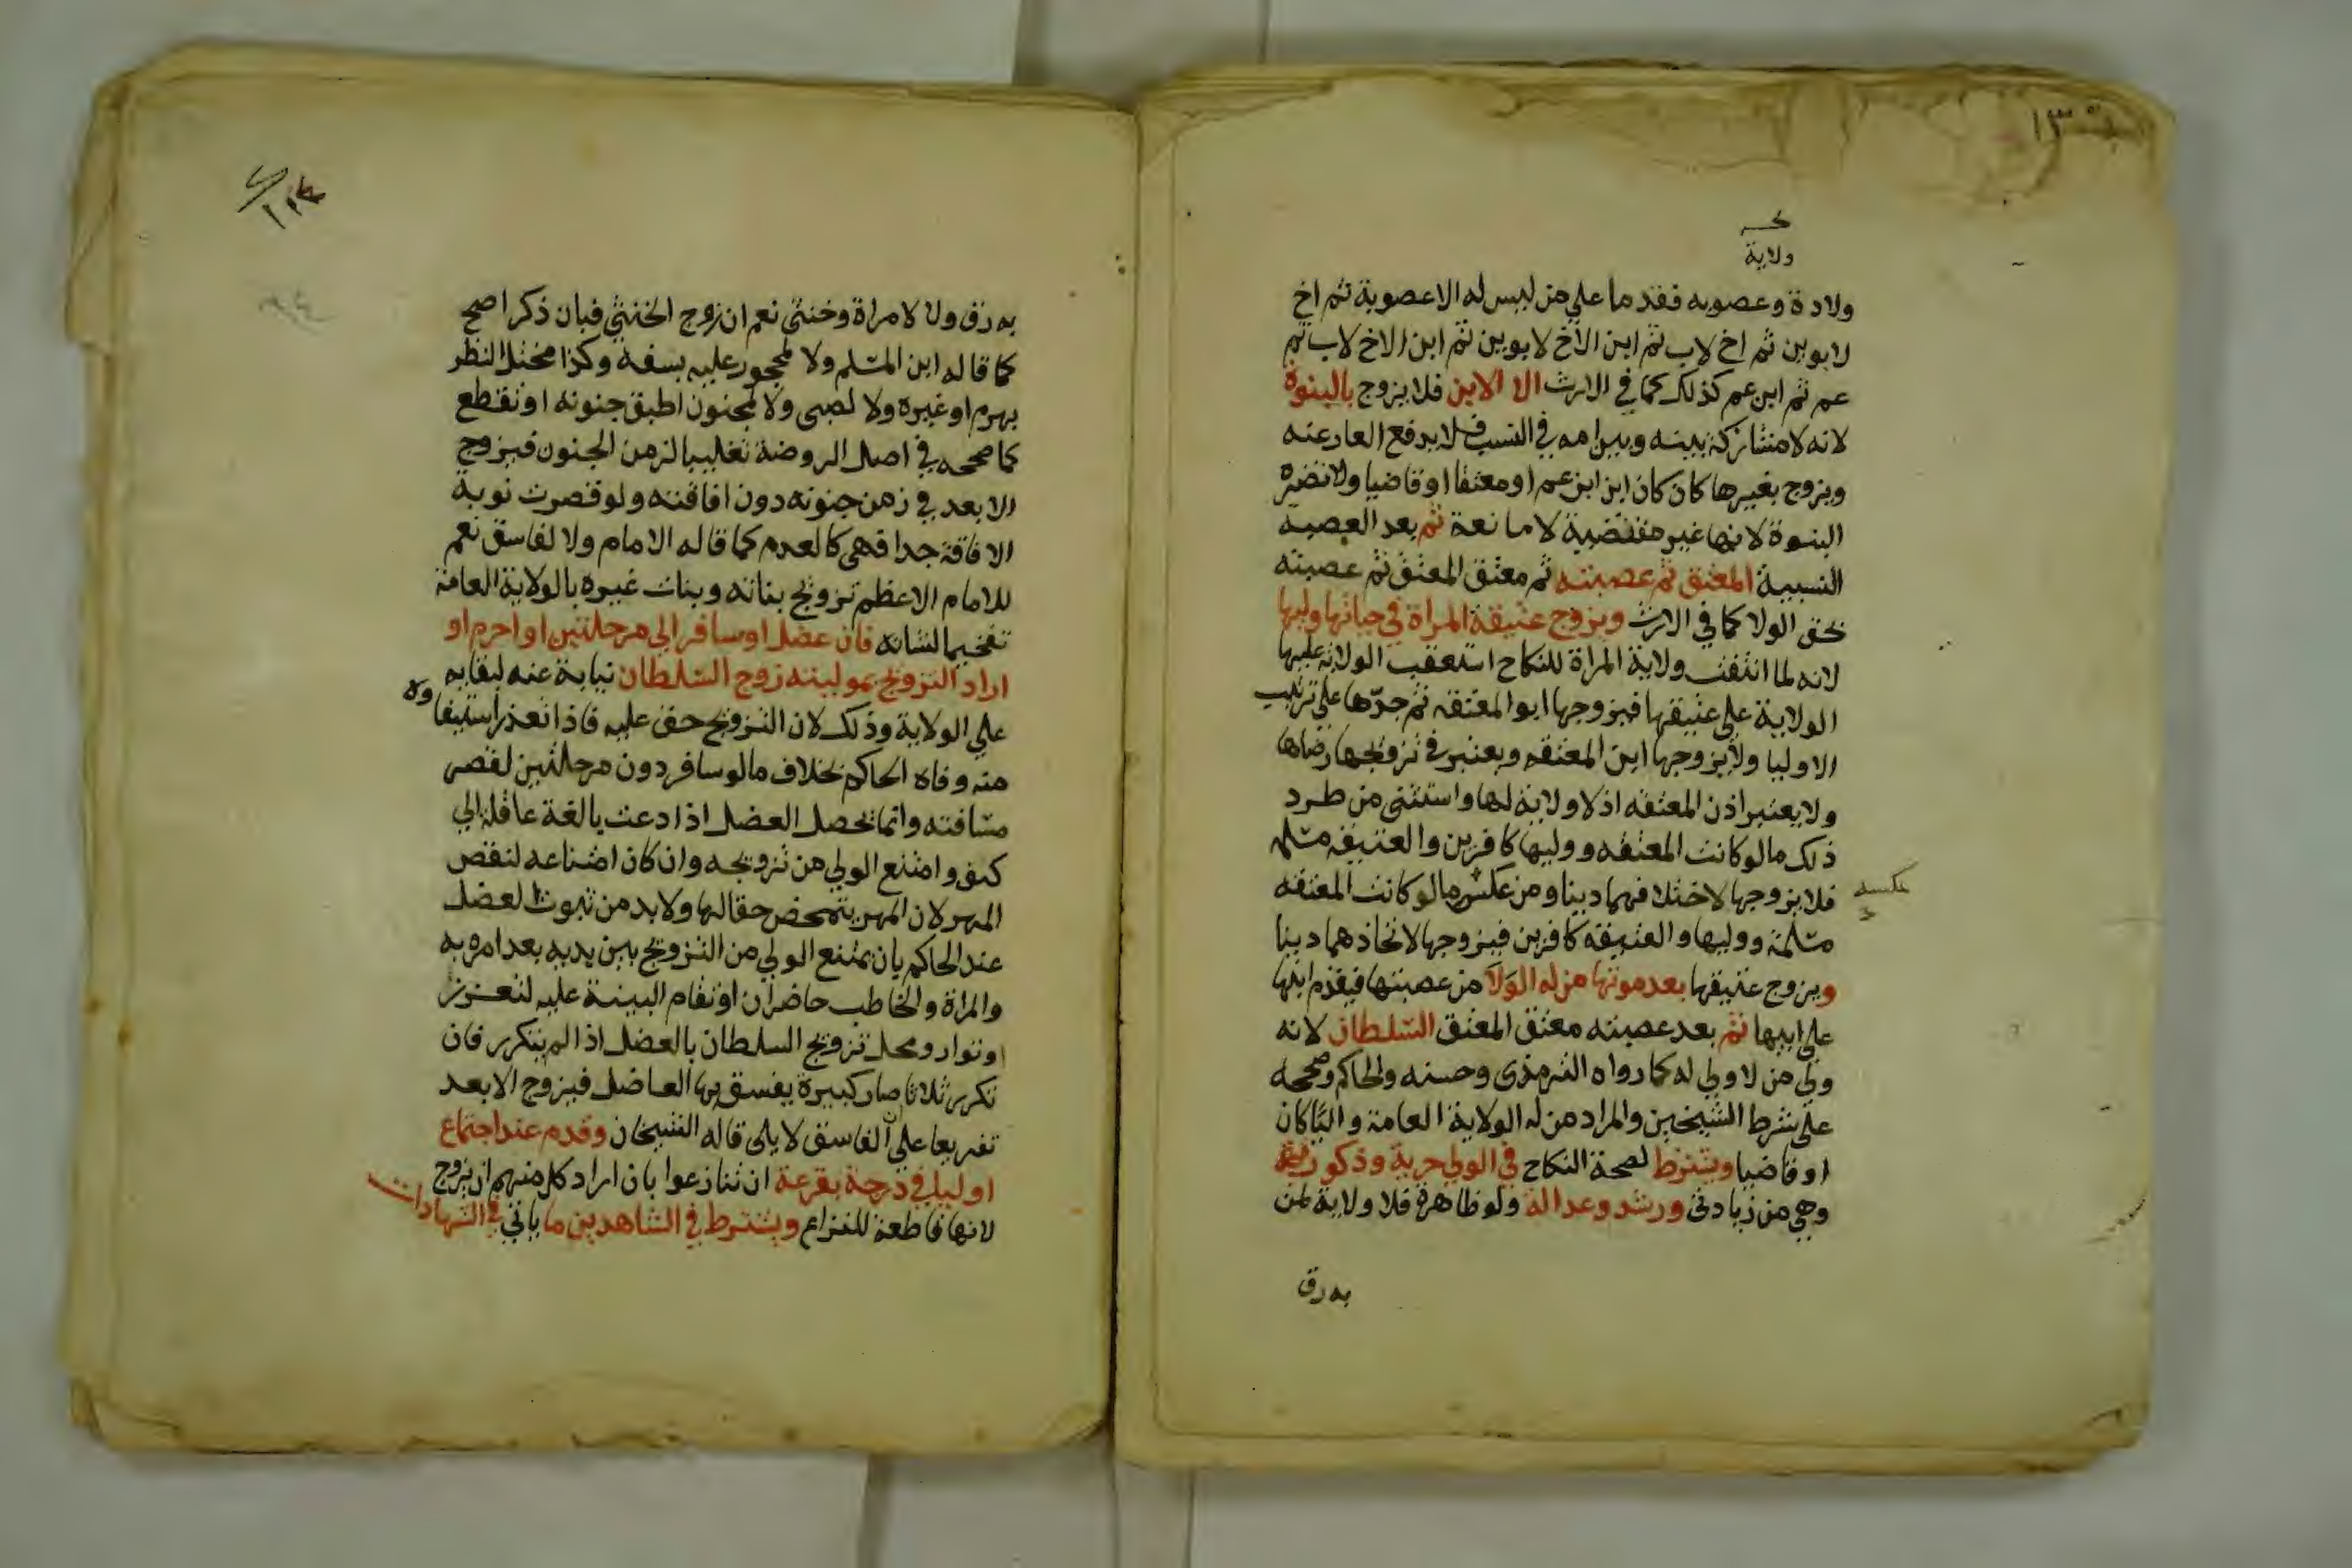 ١٣
ولاية
ولادة وعصوبه فقدما علي من ليس له الا عصوبة ثم اخ
لابوين ثم اخ لاب ثم ابن الاخ لابوين ثم ابن الاخ لاب ثم
عم ثم ابن عم كذلك كما في الارث الا الابن فلا يزوج بالبنوة
لانه لا مشاركة بينه وبين امه في النسب فلا يدفع العار عنه
ويزوج بغيرها كان كان ابن ابن عم او معتقا او قاضيا ولا تضره
البنوة لانها غير مقتضية لا مانعة ثم بعد العصبه
النسبية المعتق ثم عصبته ثم معتق المعتق ثم عصبته
بحق الولا كما في الارث ويزوج عتيقة المراة في حياتها وليها
لانه لما انتفت ولاية المراة للنكاح استعقب الولاية عليها
الولاية علي عتيقها فيزوجها ابو المعتقه ثم جدها علي ترتيب
الاوليا ولا يزوجها ابن المعتقه ويعتبر في تزويجها رضاها
ولا يعتبر اذن المعتقه اذ لا ولاية لها واستثني من طرد
ذلك ما لو كانت المعتقه ووليها كافرين والعتيقه مسلمه
فلا يزوجها لاختلافهما دينا ومن عكسه ما لو كانت المعتقه
عكسه
مسلمة ووليها والعتيقه كافرين فيزوجها لاتحادهما دينا
ويزوج عتيقها بعد موتها من له الولا من عصبتها فيقدم ابنها
علي ابيها ثم بعد عصبته معتق المعتق السلطان لانه
ولي من لا ولي له كما رواه الترمذي وحسنه والحاكم وصححه
علي شرط الشيخين والمراد من له الولاية العامة واليا كان
او قاضيا ويشترط لصحة النكاح في الولي حرية وذكورة
وهي من زيادتي ورشد وعدالة ولو ظاهرة فلا ولاية لمن
به رق
به رق ولا لامراة وخنثي نعم ان زوج الخنثي فبان ذكرا صح
كما قاله ابن المسلم ولا لمحجور عليه بسفه وكذا مختل النظر
بهرم او غيره ولا لصبي ولا لمجنون اطبق جنونه او تقطع
كما صححه في اصل الروضة تغليبا لزمن الجنون فيزوج
الابعد في زمن جنونه دون افاقته ولو قصرت نوبة
الافاقة جدا فهي كالعدم كما قاله الامام ولا لفاسق نعم
للامام الاعظم تزويج بناته وبنات غيره بالولاية العامة
تفخيما لشانه فان عضل او سافر الي مرحلتين او احرم او
اراد التزويج بموليته زوج السلطان نيابة عنه لبقايه
علي الولاية وذلك لان التزويج حق عليه فاذا تعذر استيفاوه
منه وفاه الحاكم بخلاف ما لو سافر دون مرحلتين لقصر
مسافته وانما يحصل العضل اذا دعت بالغة عاقلة الي
كفو وامتنع الولي من تزويجه وان كان امتناعه لنقص
المهر لان المهر يتمحض حقا لها ولا بد من ثبوت العضل
عند الحاكم بان يمتنع الولي من التزويج بين يديه بعد امره به
والمراة والخاطب حاضران او تقام البينة عليه لتعزز
او توار ومحل تزويج السلطان بالعضل اذا لم يتكرر فان
تكرر ثلاثا صار كبيرة يفسق بها العاضل فيزوج الابعد
تفريعا علي ان الفاسق لا يلي قاله الشيخان وقدم عند اجتماع
اوليا في درجة بقرعة ان تنازعوا بان اراد كل منهم ان يزوج
لانها قاطعة للنزاع ويشترط في الشاهدين ما ياتي في الشهادات